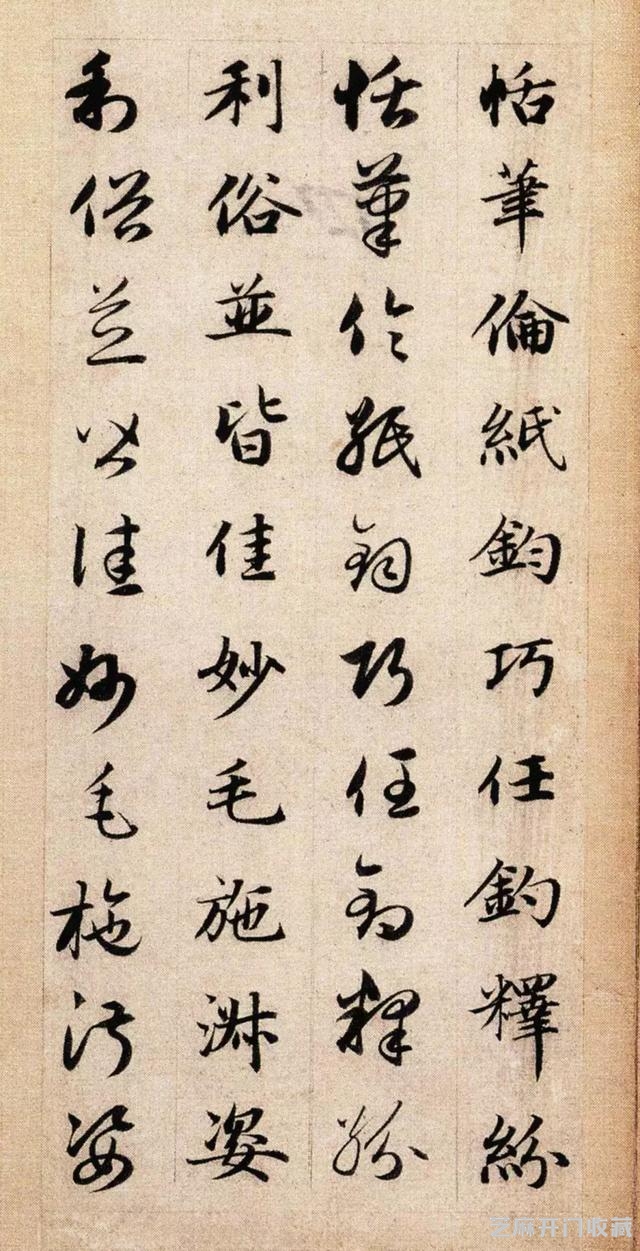 恬筆倫紙鈞巧任釣釋紛
恬筆倫紙鈞巧任釣釋紛
利俗並皆佳妙毛施淑姿
利俗並皆佳妙毛施淑姿
芝麻开门收藏